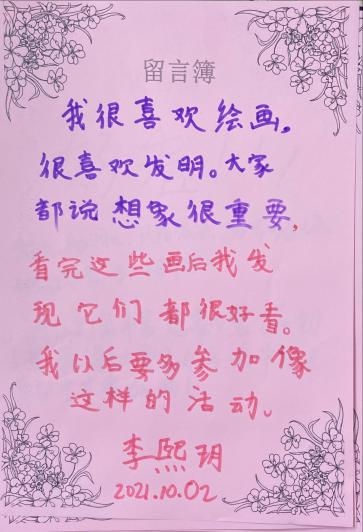 留言簿
我很喜欢绘画,
很喜欢发明。大家
都说想象很重要,
看完这些画后我发
现它们都很好看。
我以后要多参加像
这样的活动。
李熙玥
2021.10.02